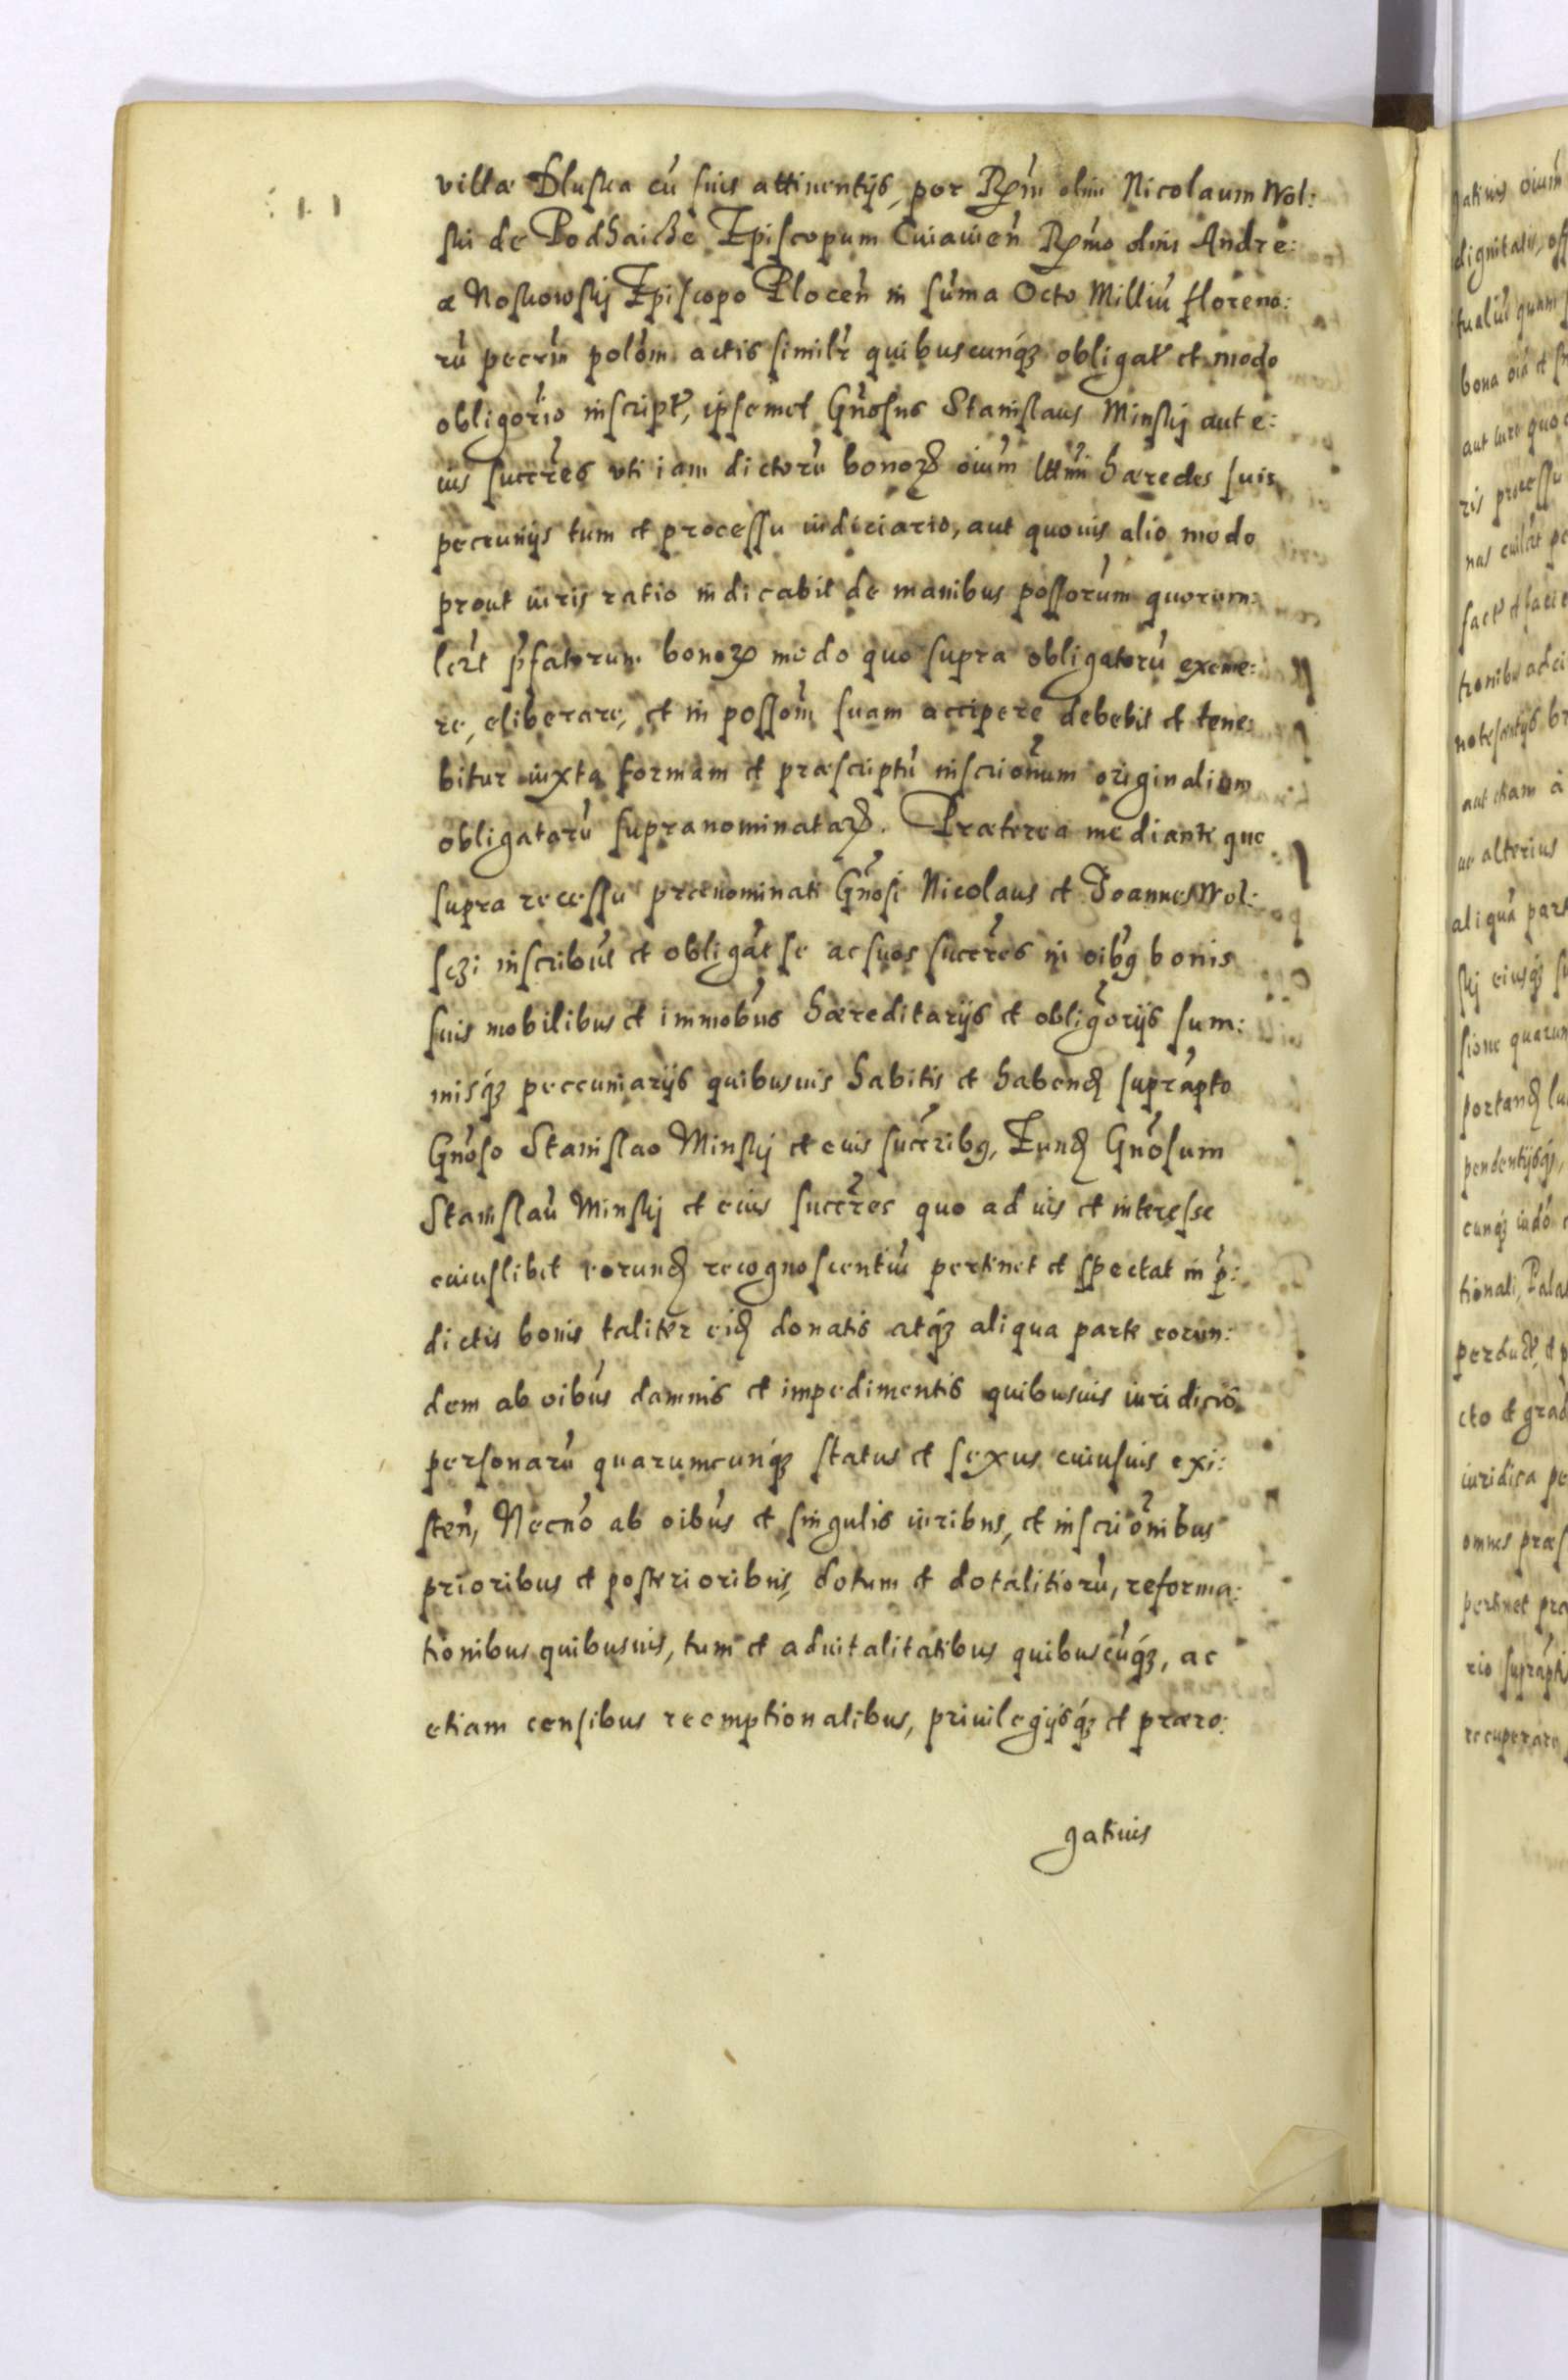 villæ Dluska cū suis attinentijs, per Rm̄ olim Nicolaum Wol:
ski de Podhaicze Episcopum Cuiavień Rmo olim Andre:
æ Noskowskj Episcopo Ploceń in sum̄a Octo Milliū floreno:
rū peccūn polōm actis similr̄ quibuscunq₃ obligat̄ et modo
obligōrio inscript̄, ipsemet Gn̄osus Stanislaus Minskj aut e:
ius succr̄es vti iam dictorū bonoꝝ oiūm lttmi hæredes suis
peccunijs tum et processu iudiciario, aut quouis alio modo
prout iuris ratio indicabit de manibus possorūm quorum:
lebt p̄fatorum bonoꝝ modo quo supra obligatorū exime:
re, eliberare, et in possom̄ suam accipere debebit et tene:
bitur iuxta formam et præscriptū inscrionūm originalium
obligatorū supranominataꝝ. Præterea mediante quo
supra recessu prænominati Gn̄osi Nicolaus et Joannes Wol:
sczi inscribūt et obligāt se ac suos succr̄es in oib9 bonis
suis mobilibus et immobūs hæreditarijs et obligōrijs sum:
misq₃ peccuniarijs quibusuis habitis et habend̄ suprāpto
Gn̄oso Stanislao Minskj et eius succr̄ib9, Eund̄ Gn̄osum
Stanislaū Minskj et eius succr̄es quo ad ius et interesse
cuiuslibet eorund̄ recognoscentiū pertinet et spectat in p̄:
dictis bonis taliter eid̄ donatis atq₃ aliqua parte eorun:
dem ab oibūs damnis et impedimentis quibusuis iuridicīs
personarū quarumcunq₃ status et sexus cuiusuis exi:
steń, Necnō ab oibūs et singulis iuribus, et inscrionībus
prioribus et posterioribus, dotum et dotalitiorū, reforma:
tionibus quibusuis, tum et aduitalitatibus quibuscūq₃, ac
etiam censibus reemptionalibus, priuilegijsq₃ et præro:
gatiuis